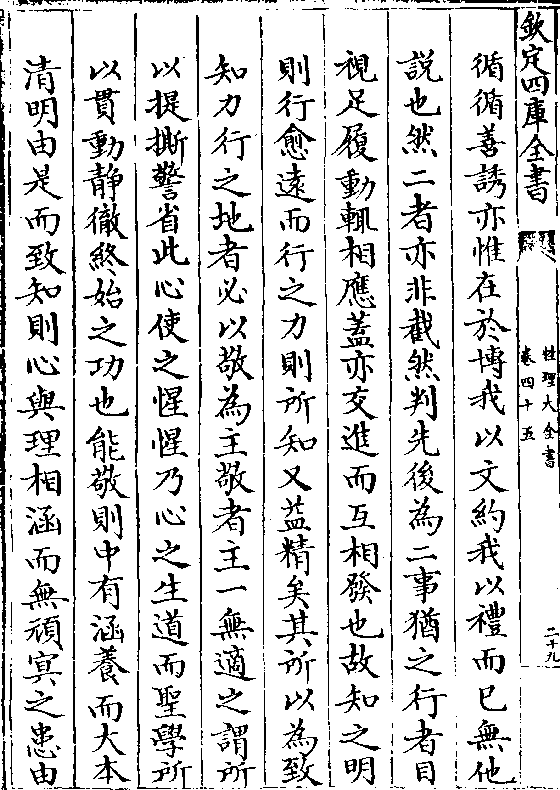 欽定四庫全書
性理大全書
卷四十五
二十九
循循善誘亦惟在於博我以文約我以禮而已無他
說也然二者亦非截然判先後為二事猶之行者目
視足履動輒相應蓋亦交進而互相發也故知之明
則行愈遠而行之力則所知又益精矣其所以為致
知力行之地者必以敬為主敬者主一無適之謂所
以提撕警省此心使之惺惺乃心之生道而聖學所
以貫動靜徹終始之功也能敬則中有涵養而大本
清明由是而致知則心與理相涵而無頑冥之患由